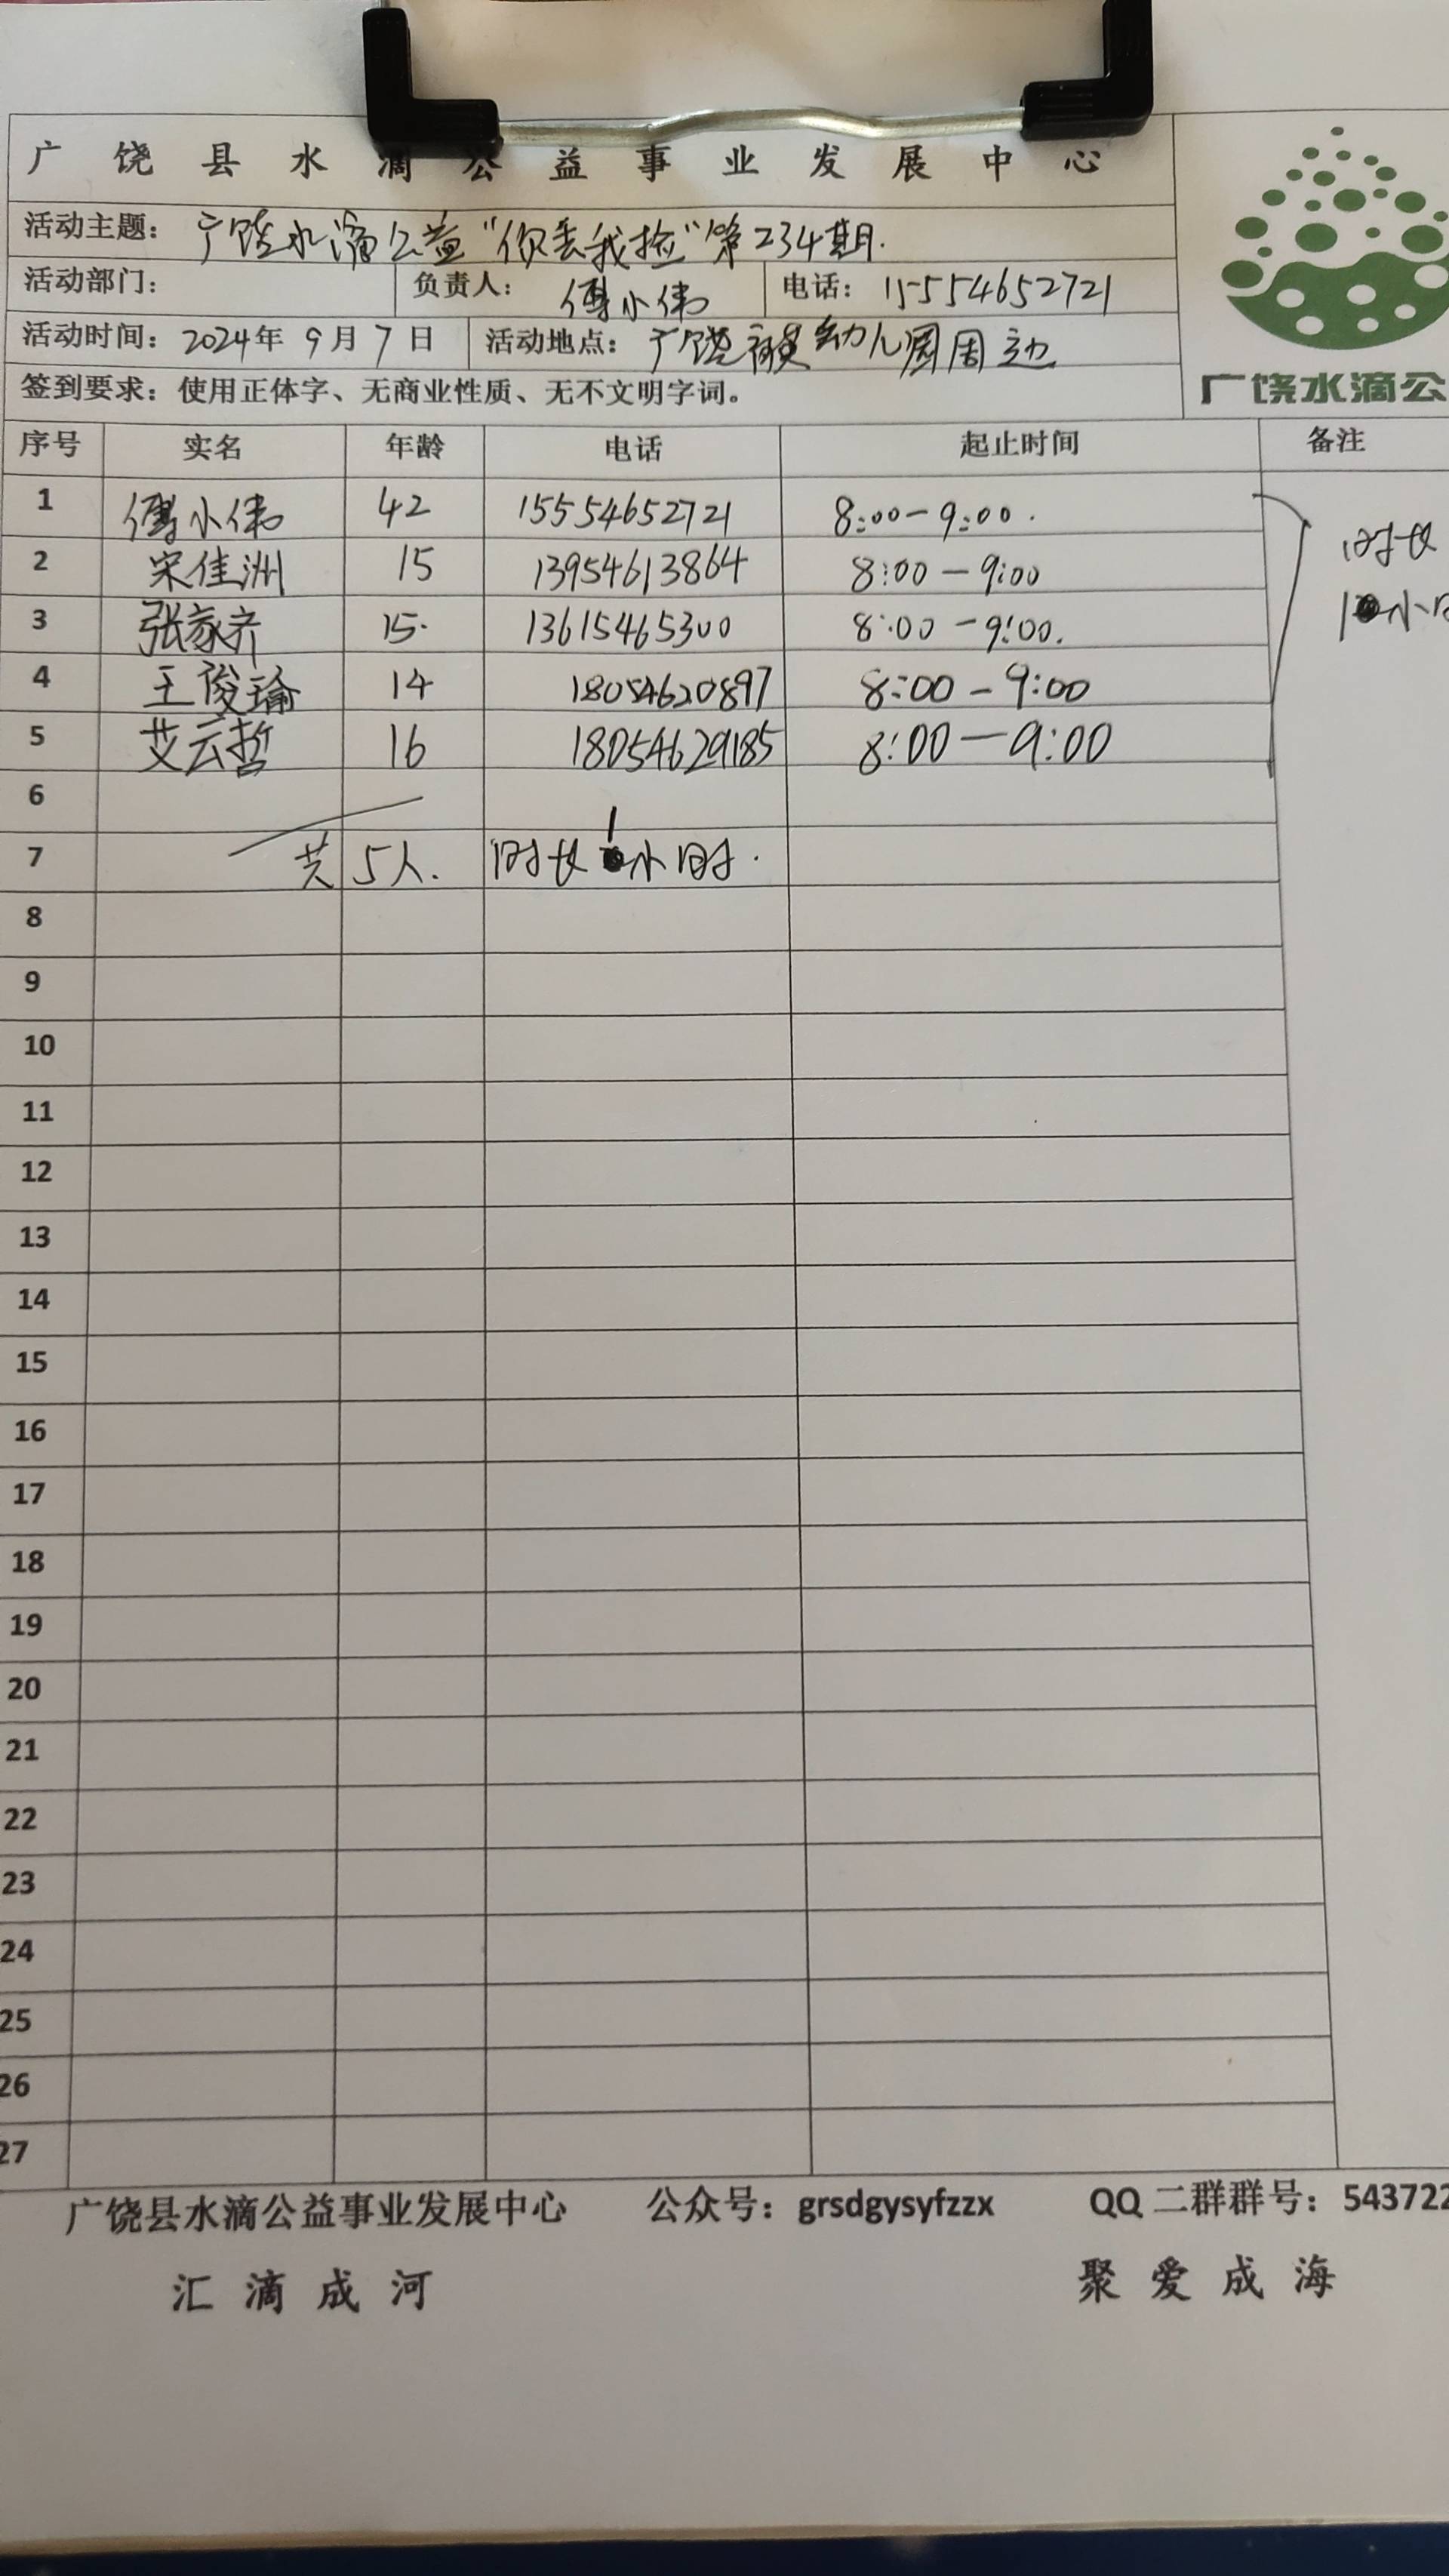 广饶县水滴公益事业发展中心
活动主题：广饶水滴公益“你丢我捡”第234期.
活动部门： 负责人：傅小伟 电话：15554652721
活动时间：2024年9月7日 活动地点：广饶 幼儿园周边
签到要求：使用正体字、无商业性质、无不文明字词。
广饶水滴公
序号 实名 年龄 电话 起止时间 备注
1 傅小伟 42 15554652721 8:00-9:00.
2 宋佳洲 15 13954613864 8:00-9:00
3 张家齐 15. 13615465300 8:00-9:00.
4 王俊瑜 14 18054620897 8:00-9:00
5 艾云哲 16 18054629185 8:00-9:00
时长
1小时
6
7 共5人. 时长1小时.
8
9
10
11
12
13
14
15
16
17
18
19
20
21
22
23
24
25
26
27
广饶县水滴公益事业发展中心 公众号：grsdgysyfzzx QQ二群群号：543722
汇滴成河 聚爱成海